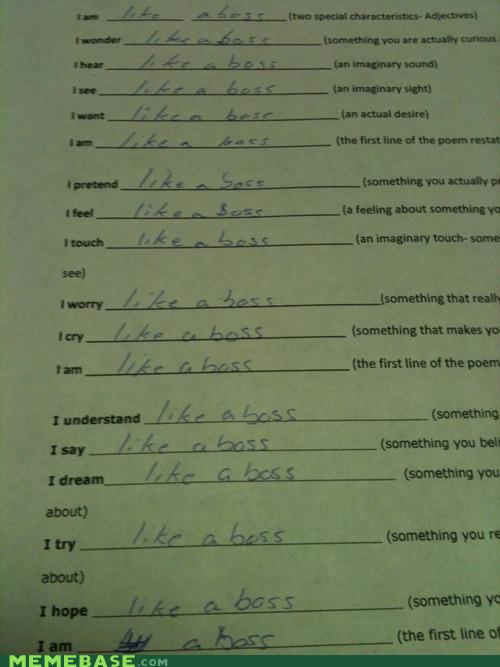 I am like a boss (two special characteristics- Adjectives)
I wonder like a boss (something you are actually curious
I hear like a boss (an imaginary sound)
I see like a boss (an imaginary sight)
I want like a boss (an actual desire)
I am like a boss (the first line of the poem restat
I pretend like a boss (something you actually p
I feel like a Boss (a feeling about something yo
I touch like a boss (an imaginary touch- some
see)
I worry like a boss (something that really
I cry like a boss (something that makes yo
I am like a boss (the first line of the poem
I understand like a boss (something
I say like a boss (something you beli
I dream like a boss (something you
about)
I try like a boss (something you re
about)
I hope like a boss (something yo
I am a boss (the first line of
MEMEBASE.COM